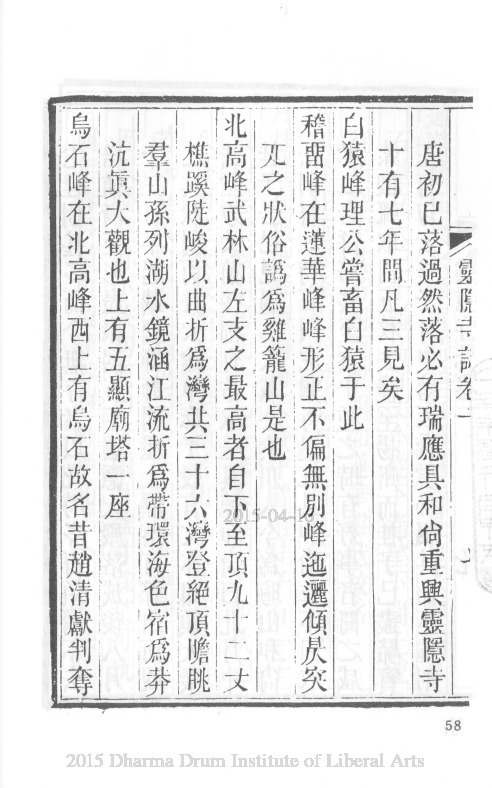 靈隱寺誌卷一
唐初已落過然落必有瑞應具和尙重興靈隱寺
十有七年間凡三見矣
白猿峰理公嘗畜白猿于此
稽畱峰在蓮華峰峰形正不偏無別峰迤邐傾昃突
兀之狀俗譌爲雞籠山是也
北高峰武林山左支之最高者自下至頂九十二丈
樵蹊陡峻以曲折爲灣共三十六灣登絕頂瞻眺
羣山孫列湖水鏡涵江流折爲帶環海色宿爲莽
沆眞大觀也上有五顯廟塔一座
烏石峰在北高峰西上有烏石故名昔趙淸獻判奪
2015-04-16
58
2015 Dharma Drum Institute of Liberal Arts